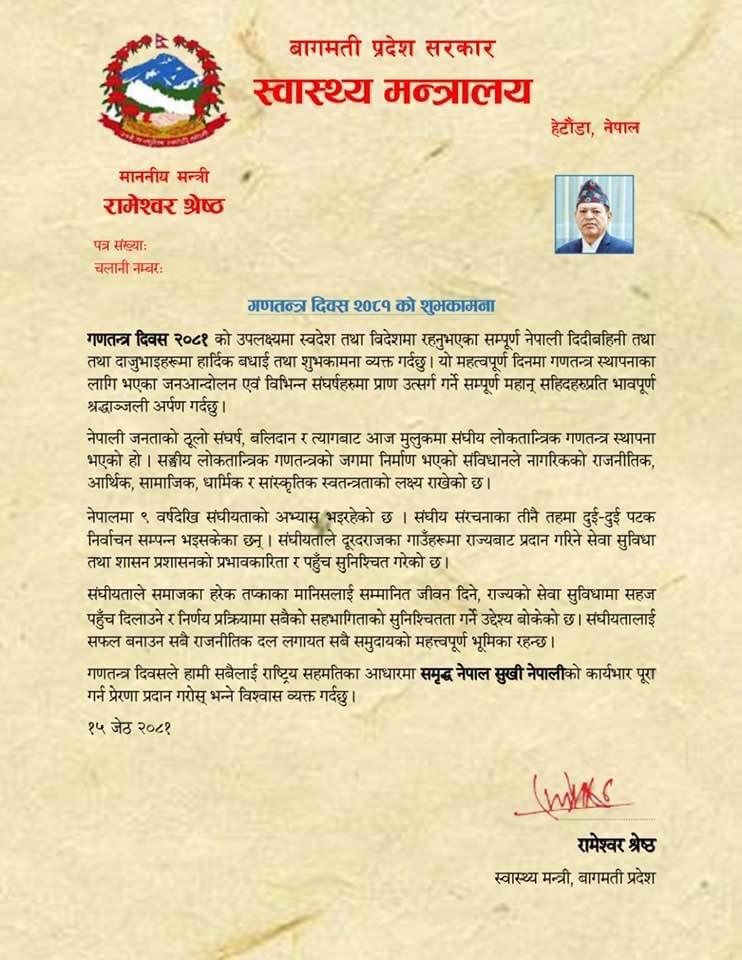 बागमती प्रदेश सरकार
स्वास्थ्य मन्त्रालय
हेटौंडा, नेपाल
माननीय मन्त्री
रामेश्वर श्रेष्ठ
पत्र संख्याः
चलानी नम्बरः
गणतन्त्र दिवस २०८१ को शुभकामना
गणतन्त्र दिवस २०८१ को उपलक्ष्यमा स्वदेश तथा विदेशमा रहनुभएका सम्पूर्ण नेपाली दिदीबहिनी तथा
तथा दाजुभाइहरूमा हार्दिक बधाई तथा शुभकामना व्यक्त गर्दछु। यो महत्वपूर्ण दिनमा गणतन्त्र स्थापनाका
लागि भएका जनआन्दोलन एवं विभिन्न संघर्षहरुमा प्राण उत्सर्ग गर्ने सम्पूर्ण महान् सहिदहरुप्रति भावपूर्ण
श्रद्धाञ्जली अर्पण गर्दछु।
नेपाली जनताको ठूलो संघर्ष, बलिदान र त्यागबाट आज मुलुकमा संघीय लोकतान्त्रिक गणतन्त्र स्थापना
भएको हो । सङ्घीय लोकतान्त्रिक गणतन्त्रको जगमा निर्माण भएको संविधानले नागरिकको राजनीतिक,
आर्थिक, सामाजिक, धार्मिक र सांस्कृतिक स्वतन्त्रताको लक्ष्य राखेको छ।
नेपालमा ९ वर्षदेखि संघीयताको अभ्यास भइरहेको छ । संघीय संरचनाका तीनै तहमा दुई-दुई पटक
निर्वाचन सम्पन्न भइसकेका छन्। संघीयताले दूरदराजका गाउँहरूमा राज्यबाट प्रदान गरिने सेवा सुविधा
तथा शासन प्रशासनको प्रभावकारिता र पहुँच सुनिश्चित गरेको छ।
संघीयताले समाजका हरेक तप्काका मानिसलाई सम्मानित जीवन दिने, राज्यको सेवा सुविधामा सहज
पहुँच दिलाउने र निर्णय प्रक्रियामा सबैको सहभागिताको सुनिश्चितता गर्ने उद्देश्य बोकेको छ। संघीयतालाई
सफल बनाउन सबै राजनीतिक दल लगायत सबै समुदायको महत्त्वपूर्ण भूमिका रहन्छ।
गणतन्त्र दिवसले हामी सबैलाई राष्ट्रिय सहमतिका आधारमा समृद्ध नेपाल सुखी नेपालीको कार्यभार पूरा
गर्न प्रेरणा प्रदान गरोस् भन्ने विश्वास व्यक्त गर्दछु।
१५ जेठ २०८१
रामेश्वर श्रेष्ठ
स्वास्थ्य मन्त्री, बागमती प्रदेश